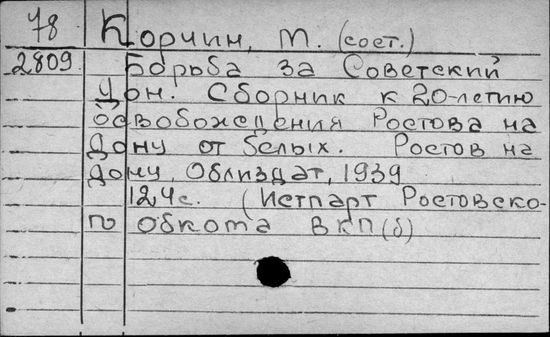 78 Корчин, М. (сост.)
2809 Борьба за Советский
Дон. Сборник к 20-летию
освобождения Ростова на
Дону от белых. Ростов на
Дону, Облиздат, 1939
124с. (Истпарт Ростовско-
го обкома ВКП(б)